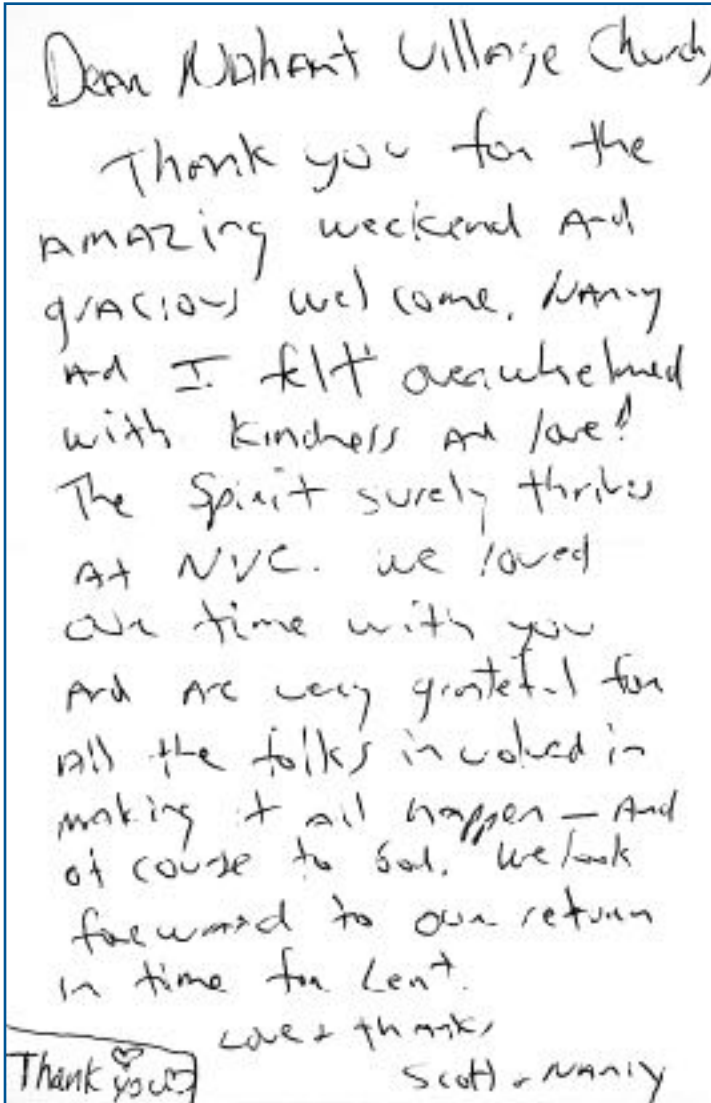 Dear Nahant Village Church,
Thank you for the
amazing weekend and
gracious welcome. Nancy
and I felt overwhelmed
with kindness and love!
The Spirit surely thrives
at NVC. We loved
our time with you
and are very grateful for
all the folks involved in
making it all happen — and
of course to God. We look
forward to our return
in time for Lent.
Love & thanks,
Scott & Nancy
Thank you